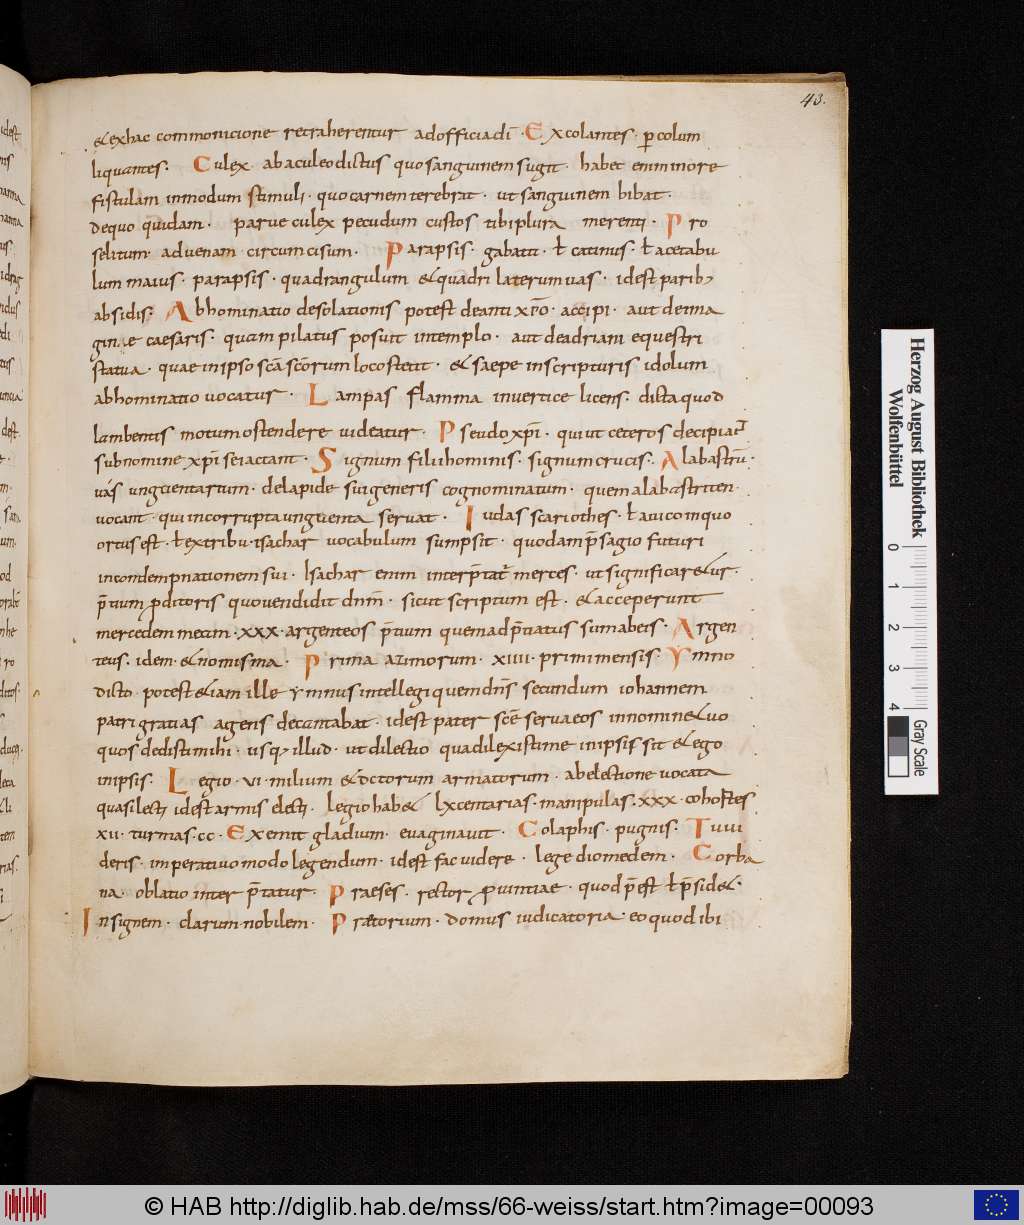 43.
& ex hac commonicione retraherentur ad officia dī · Excolantes · p colum
liquantes. Culex · ab aculeo dictus quo sanguinem sugit · habet enim in ore
fistulam in modum stimuli · quo carnem terebrat · ut sanguinem bibat ·
de quo quidam · parve culex pecudum custos tibi plura merenti · Pro
selitum · advenam · circumcisum · Parapsis · gabata · ł catinus · ł acetabu
lum maius · parapsis · quadrangulum & quadri laterum vas · idest parib;
absidis. Abhominatio desolationis potest de anti xpo · accipi · aut de ima
gine caesaris · quam pilatus posuit in templo · aut de adriani equestri
statua · quae in ipso scā scōrum loco stetit · & saepe in scripturis idolum
abhominatio vocatur · Lampas flamma in vertice licens · dicta quod
lambentis motum ostendere videatur · Pseudo xpī · qui ut ceteros decipiat
sub nomine xpī se iactant · Signum filii hominis · signum crucis · Alabastrū ·
vas unguentarium · de lapide sui generis cognominatum · quem alabastriten
vocant · qui incorrupta unguenta servat · Iudas scariothes · ł a vico in quo
ortus est · ł ex tribu isachar vocabulum sumpsit · quodam p̄sagio futuri
in condempnationem sui · Isachar enim interp̄tat̄ merces · ut significar&ur ·
p̄tium proditoris quo vendidit dnm̄ · sicut scriptum est · & acceperunt
mercedem meam · xxx · argenteos p̄tium quem adp̄tiatus sum ab eis · Argen
teus · idem · & nomisma · Prima azimorum · xiiii · primi mensis · Ymno
dicto · potest &iam ille ymnus intellegi quem dn̄s secundum iohannem
patri gratias agens decantabat · idest pater scē serva eos in nomine tuo
quos dedisti mihi · usq; illud · ut dilectio qua dilexisti me in ipsis sit & ego
in ipsis. Legio · vi · milium & dctorum armatorum · ab electione vocata
quasi lecti idest armis electi · legio hab& lx centarias · manipulas · xxx · cohostes
xii · turmas · cc · Exemit gladium · evaginavit · Colaphis · pugnis · Tu vi
deris · imperativo modo legendum · idest fac videre · lege diomedem · Corba
na · oblatio inter p̄tatur · Praeses · rector provintiae · quod p̄est ł p̄sid& ·
Insignem · clarum nobilem · Praetorium · domus iudicatoria · eo quod ibi
Herzog August Bibliothek
Wolfenbüttel
0 1 2 3 4
Gray Scale
© HAB http://diglib.hab.de/mss/66-weiss/start.htm?image=00093